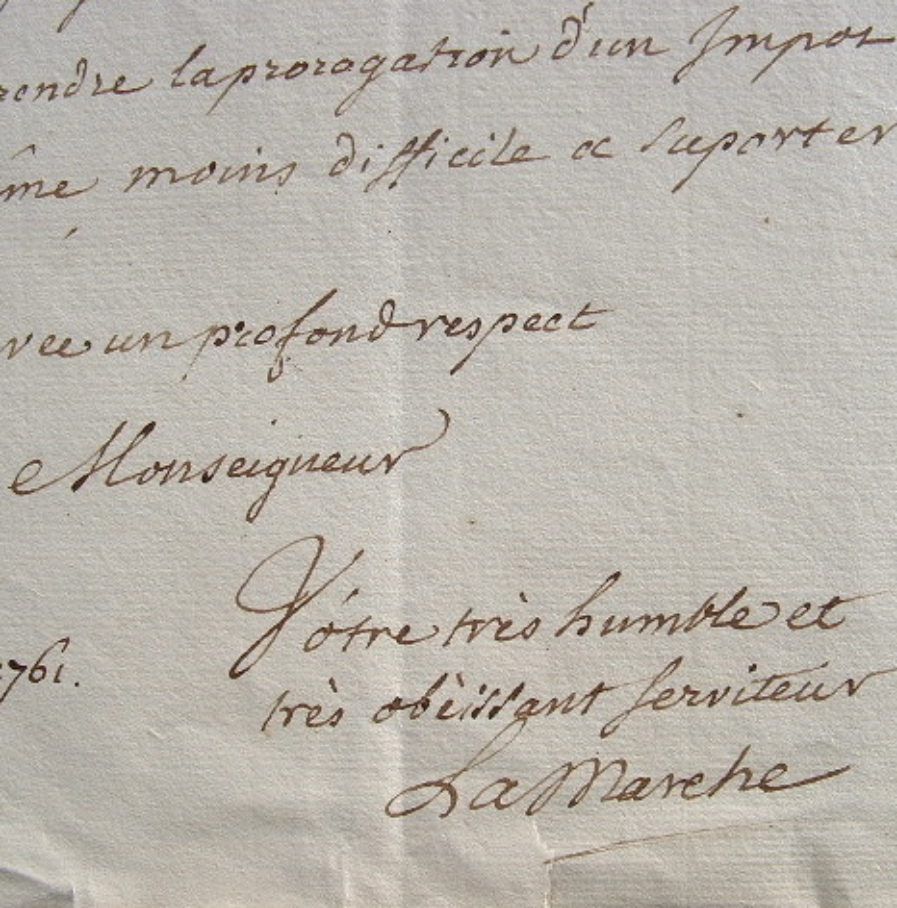 rendre la prorogation d'un Impot
me moins difficile a suporter
vec un profond respect
Monseigneur
Vótre très humble et
1761.
très obèissant serviteur
La Marche